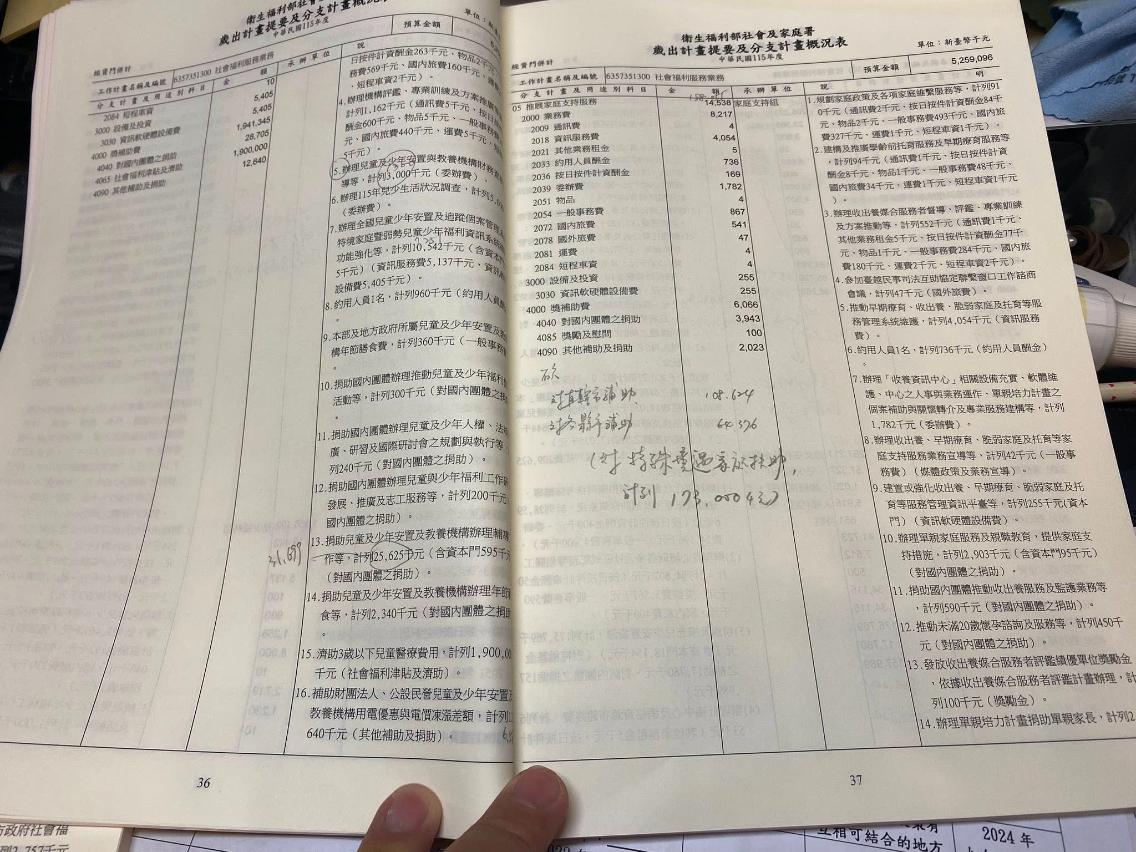 衛生福利部社會及
歲出計畫提要及分支計畫概況
中華民國115年度
經資門併計
單位：新
工作計畫名稱及編號
6357351300 社會福利服務業務
預算金額
分支計畫及用途別科目
金額
承辦單位
說
2084 短程車資
10
3000 設備及投資
5,405
3030 資訊軟硬體設備費
5,405
4000 獎補助費
1,941,345
4040 對國內團體之捐助
28,705
4065 社會福利津貼及濟助
1,900,000
4090 其他補助及捐助
12,640
日按件計資酬金263千元、物品2千
務費569千元、國內旅費160千元、
、短程車資2千元）。
4.辦理機構評鑑、專業訓練及方案推
計列1,162千元（通訊費5千元、按日
酬金600千元、物品5千元、一般事務費
元、國內旅費440千元、運費5千元、
5千元）。
5.辦理兒童及少年安置與教養機構財務
導等，計列3,000千元（委辦費）。
6.辦理115年兒少生活狀況調查，計列5,0
（委辦費）。
7.辦理全國兒童少年安置及追蹤個案管理
特境家庭暨弱勢兒童少年福利資訊系統
功能強化等，計列10,542千元（含資本
5千元）（資訊服務費5,137千元、資訊
設備費5,405千元）。
8.約用人員1名，計列960千元（約用人員
。
9.本部及地方政府所屬兒童及少年安置及
構年節膳食費，計列360千元（一般事務
。
10.捐助國內團體辦理推動兒童及少年福利
活動等，計列300千元（對國內團體之捐
。
11.捐助國內團體辦理兒童及少年人權、法
廣、研習及國際研討會之規劃與執行等
列240千元（對國內團體之捐助）。
12.捐助國內團體辦理兒童與少年福利工作
發展、推廣及志工服務等，計列200千元
國內團體之捐助）。
31,699
13.捐助兒童及少年安置及教養機構辦理輔
作等，計列25,625千元（含資本門595千
（對國內團體之捐助）。
14.捐助兒童及少年安置及教養機構辦理年節
食等，計列2,340千元（對國內團體之捐
。
15.濟助3歲以下兒童醫療費用，計列1,900,0
千元（社會福利津貼及濟助）。
16.補助財團法人、公設民營兒童及少年安置
教養機構用電優惠與電價凍漲差額，計列
640千元（其他補助及捐助）。
36
衛生福利部社會及家庭署
歲出計畫提要及分支計畫概況表
中華民國115年度
經資門併計
單位：新臺幣千元
工作計畫名稱及編號
6357351300 社會福利服務業務
預算金額
5,259,096
分支計畫及用途別科目
金額
承辦單位
說明
05 推展家庭支持服務
14,538
家庭支持組
2000 業務費
8,217
2009 通訊費
4
2018 資訊服務費
4,054
2021 其他業務租金
5
2033 約用人員酬金
736
2036 按日按件計資酬金
169
2039 委辦費
1,782
2051 物品
4
2054 一般事務費
867
2072 國內旅費
541
2078 國外旅費
47
2081 運費
4
2084 短程車資
4
3000 設備及投資
255
3030 資訊軟硬體設備費
255
4000 獎補助費
6,066
4040 對國內團體之捐助
3,943
4085 獎勵及慰問
100
4090 其他補助及捐助
2,023
縣市補助
108.624
縣市補助
64.376
（對特殊境遇家庭扶助，
計列173,000千元）
1.規劃家庭政策及各項家庭維繫服務等，計列91
0千元（通訊費2千元、按日按件計資酬金84千
元、物品2千元、一般事務費493千元、國內旅
費327千元、運費1千元、短程車資1千元）。
2.建構及推廣學齡前托育服務及早期療育服務等
，計列94千元（通訊費1千元、按日按件計資
酬金8千元、物品1千元、一般事務費48千元、
國內旅費34千元、運費1千元、短程車資1千元
）。
3.辦理收出養媒合服務者督導、評鑑、專業訓練
及方案推動等，計列552千元（通訊費1千元、
其他業務租金5千元、按日按件計資酬金77千
元、物品1千元、一般事務費284千元、國內旅
費180千元、運費2千元、短程車資2千元）。
4.參加臺越民事司法互助協定聯繫窗口工作諮商
會議，計列47千元（國外旅費）。
5.推動早期療育、收出養、脆弱家庭及托育等服
務管理系統維護，計列4,054千元（資訊服務
費）。
6.約用人員1名，計列736千元（約用人員酬金）
。
7.辦理「收養資訊中心」相關設備充實、軟體維
護、中心之人事與業務運作、單親培力計畫之
個案補助與關懷轉介及專業服務建構等，計列
1,782千元（委辦費）。
8.辦理收出養、早期療育、脆弱家庭及托育等家
庭支持服務業務宣導等，計列42千元（一般事
務費）（媒體政策及業務宣導）。
9.建置或強化收出養、早期療育、脆弱家庭及托
育等服務管理資訊平臺等，計列255千元(資本
門）（資訊軟硬體設備費）。
10.辦理單親家庭服務及親職教育，提供家庭支
持措施，計列2,903千元（含資本門95千元）
（對國內團體之捐助）。
11.捐助國內團體推動收出養服務及監護業務等
，計列590千元（對國內團體之捐助）。
12.推動未滿20歲懷孕諮詢及服務等，計列450千
元（對國內團體之捐助）。
13.發放收出養媒合服務者評鑑績優單位獎勵金
，依據收出養媒合服務者評鑑計畫辦理，計
列100千元（獎勵金）。
14.辦理單親培力計畫捐助單親家長，計列2
37
方政府社會福
列2,757千元
互相可結合的地方
2024 年